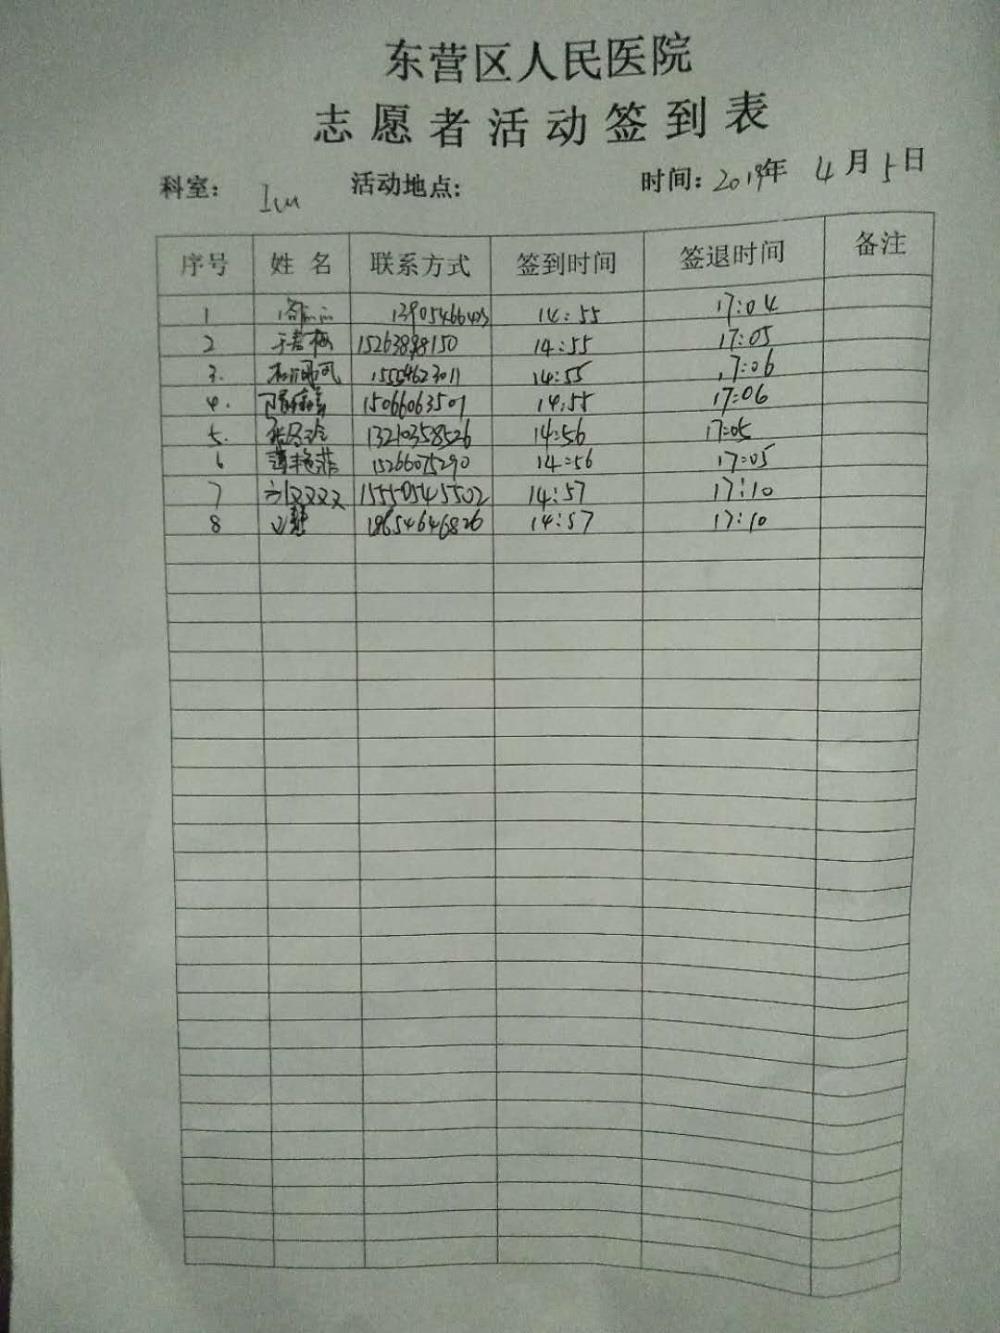 东营区人民医院
志愿者活动签到表
科室： Icu 活动地点： 时间：2019年 4月5日
序号 姓名 联系方式 签到时间 签退时间 备注
1 14:55 17:04
2 15263898150 14:55 17:05
3. 15554623011 14:55 17:06
4. 15066063507 14:55 17:06
5. 13210358526 14:56 17:05
6 薄艳菲 15266075290 14:56 17:05
7 刘双双 15550545502 14:57 17:10
8 18654646826 14:57 17:10